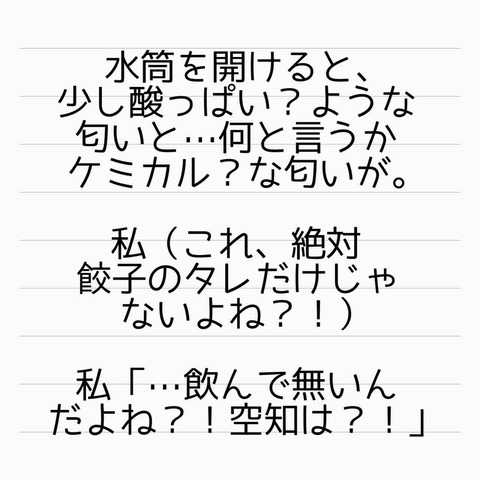 水筒を開けると、
少し酸っぱい？ような
匂いと…何と言うか
ケミカル？な匂いが。
私（これ、絶対
餃子のタレだけじゃ
ないよね？！）
私「…飲んで無いん
だよね？！空知は？！」